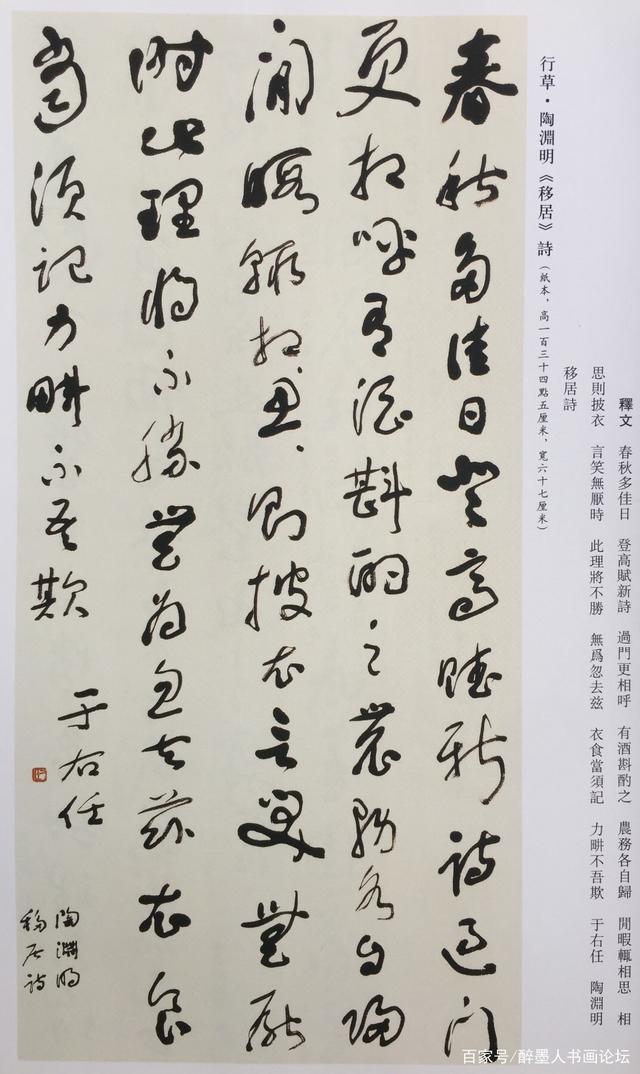 釋文 春秋多佳日 登高賦新詩 過門更相呼 有酒斟酌之 農務各自歸 閒暇輒相思 相
思則披衣 言笑無厭時 此理將不勝 無爲忽去兹 衣食當須記 力畊不吾欺 于右任 陶淵明
移居詩
行草·陶淵明《移居》詩（紙本，高一百三十四點五厘米，寬六十七厘米）
春秋多佳日登高賦新詩過門
更相呼有酒斟酌之農務各自歸
閒暇輒相、思、則披衣言笑無厭
時此理將不勝無為忽去兹衣食
當須記力畊不吾欺
于右任
陶淵明
移居詩
百家号/醉墨人书画论坛